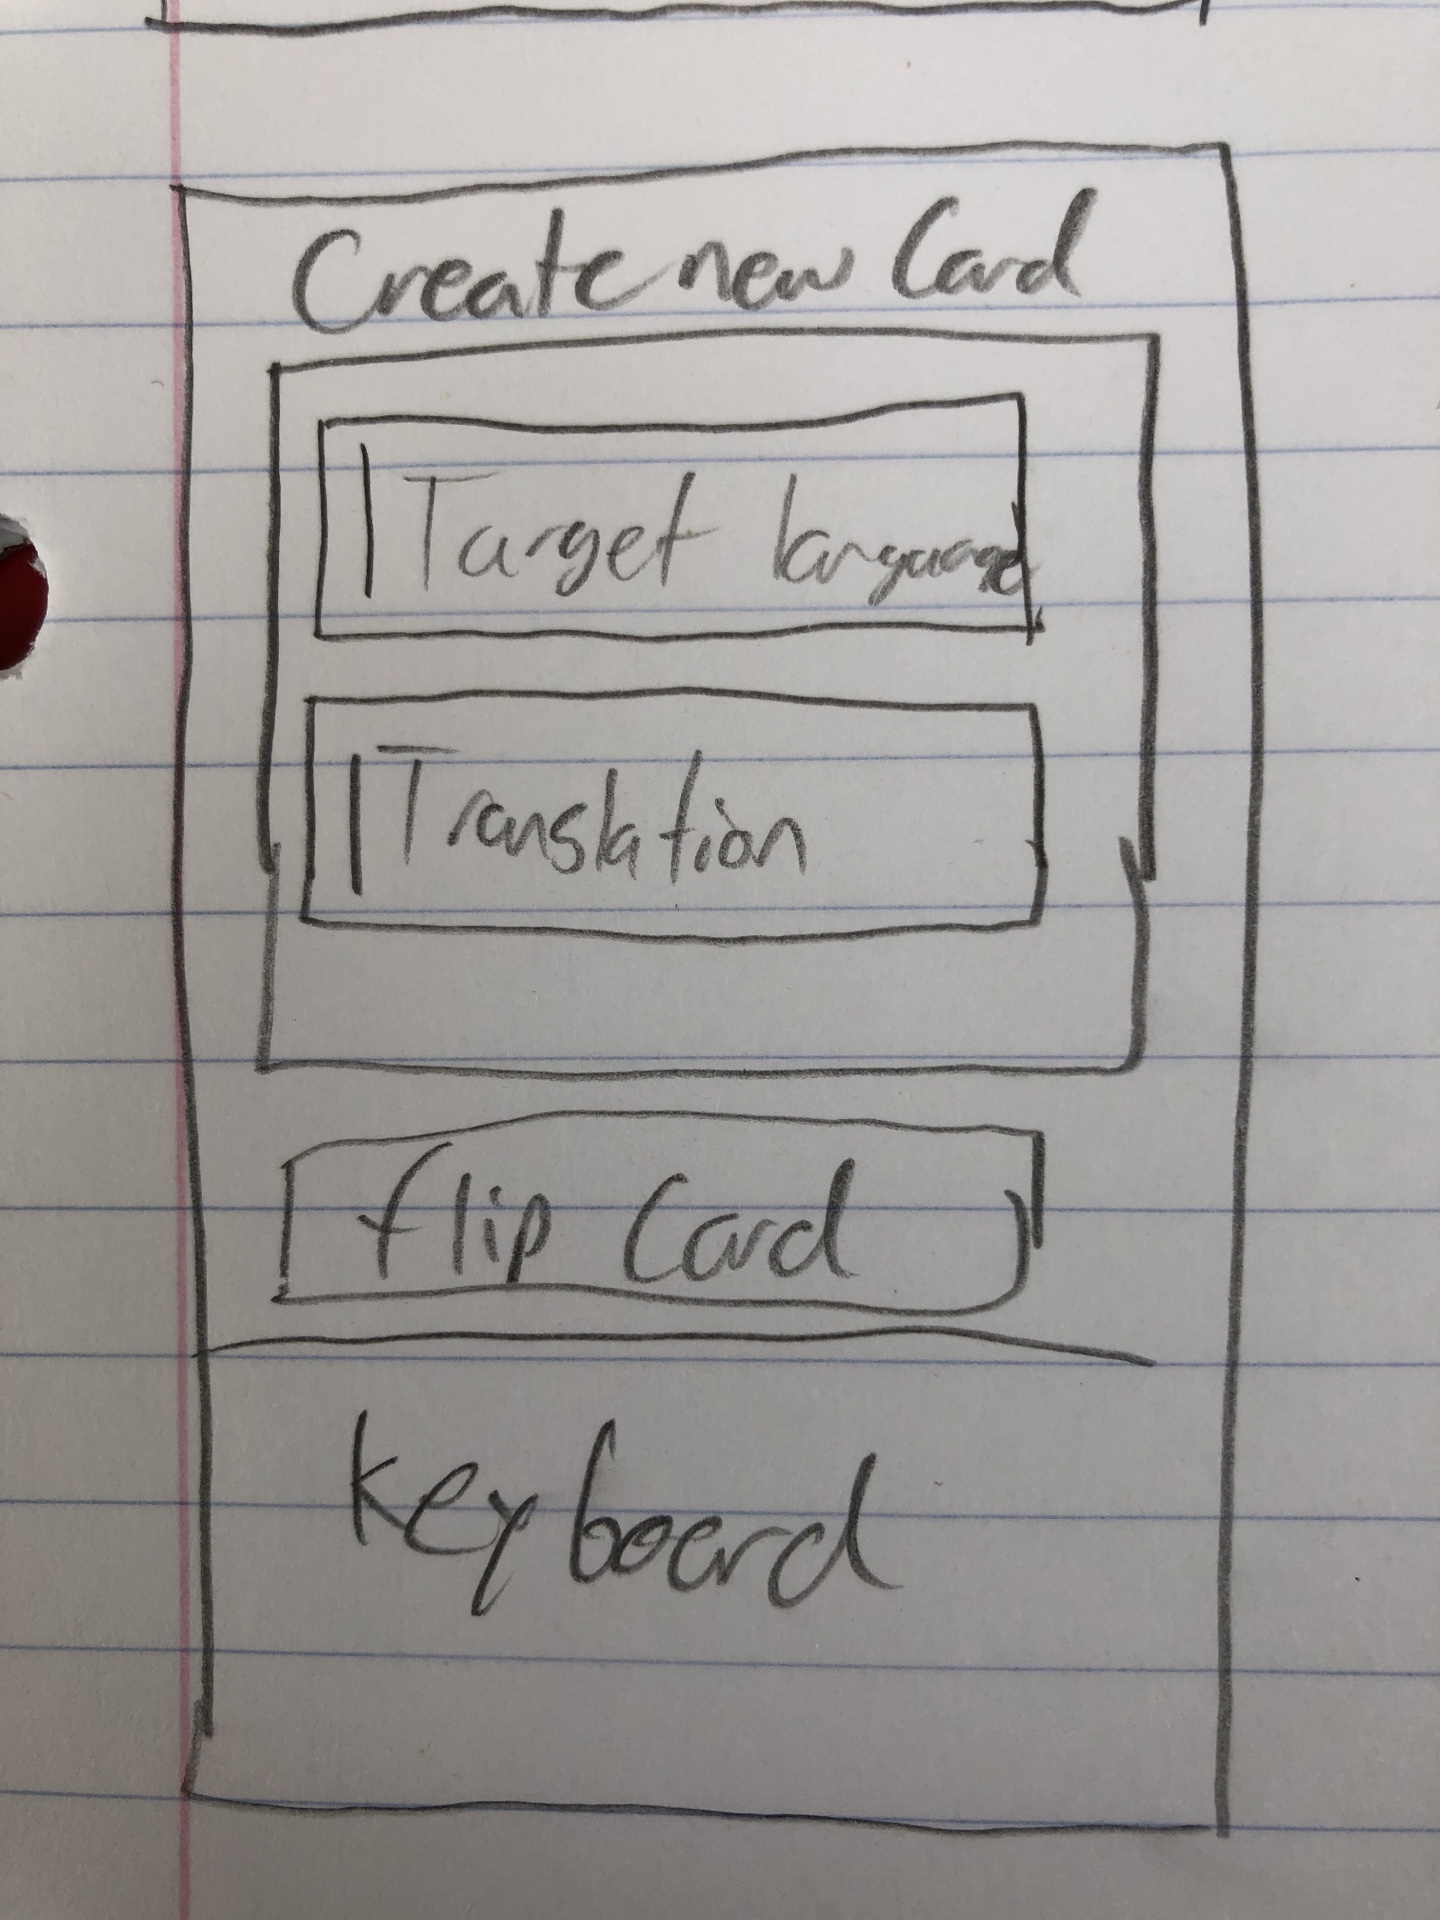 Create new Card
Target language
Translation
flip Card
keyboard